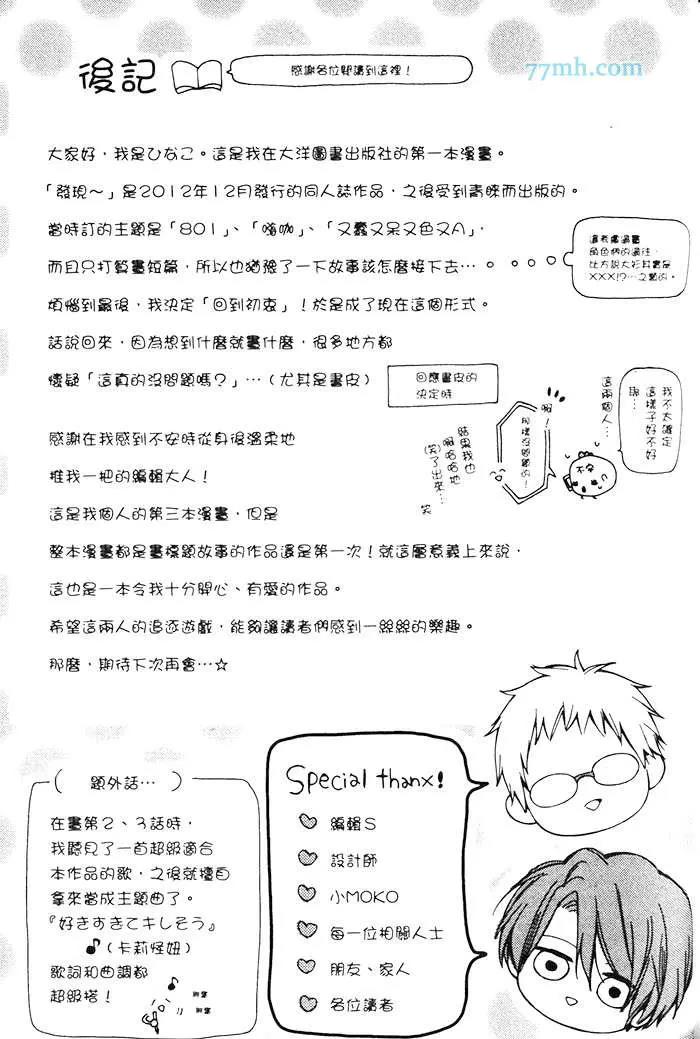 後記
感謝各位閱讀到這裡！
77mh.com
大家好，我是ひなこ。這是我在大洋圖書出版社的第一本漫畫。
「發現～」是2012年12月發行的同人誌作品，之後受到青睞而出版的。
當時訂的主題是「801」、「嗨咖」、「又蠢又呆又色又A」，
而且只打算畫短篇，所以也猶豫了一下故事該怎麼接下去…。
還考慮過畫
角色們的過往，
比方說大衫其實是
XXX!?…之類的。
煩惱到最後，我決定「回到初衷」！於是成了現在這個形式。
話說回來，因為想到什麼就畫什麼，很多地方都
懷疑「這真的沒問題嗎？」…（尤其是書皮）
回應書皮的
決定時
我不太確定
這樣子好不好
耶…
這兩個人…
不安
啊！
那樣沒問題的！
結果我也
啊哈哈地
笑了出來…
（笑）
笑
感謝在我感到不安時從身後溫柔地
推我一把的編輯大人！
這是我個人的第三本漫畫，但是
整本漫畫都是畫標題故事的作品還是第一次！就這層意義上來說，
這也是一本令我十分開心、有愛的作品。
希望這兩人的追逐遊戲，能夠讓讀者們感到一絲絲的樂趣。
那麼，期待下次再會…☆
（題外話…）
在畫第2、3話時，
我聽見了一首超級適合
本作品的歌，之後就擅自
拿來當成主題曲了。
『好きすきてキしそう』
♪（卡莉怪妞）
歌詞和曲調都
超級搭！
Special thanx!
編輯S
設計師
小MOKO
每一位相關人士
朋友、家人
各位讀者